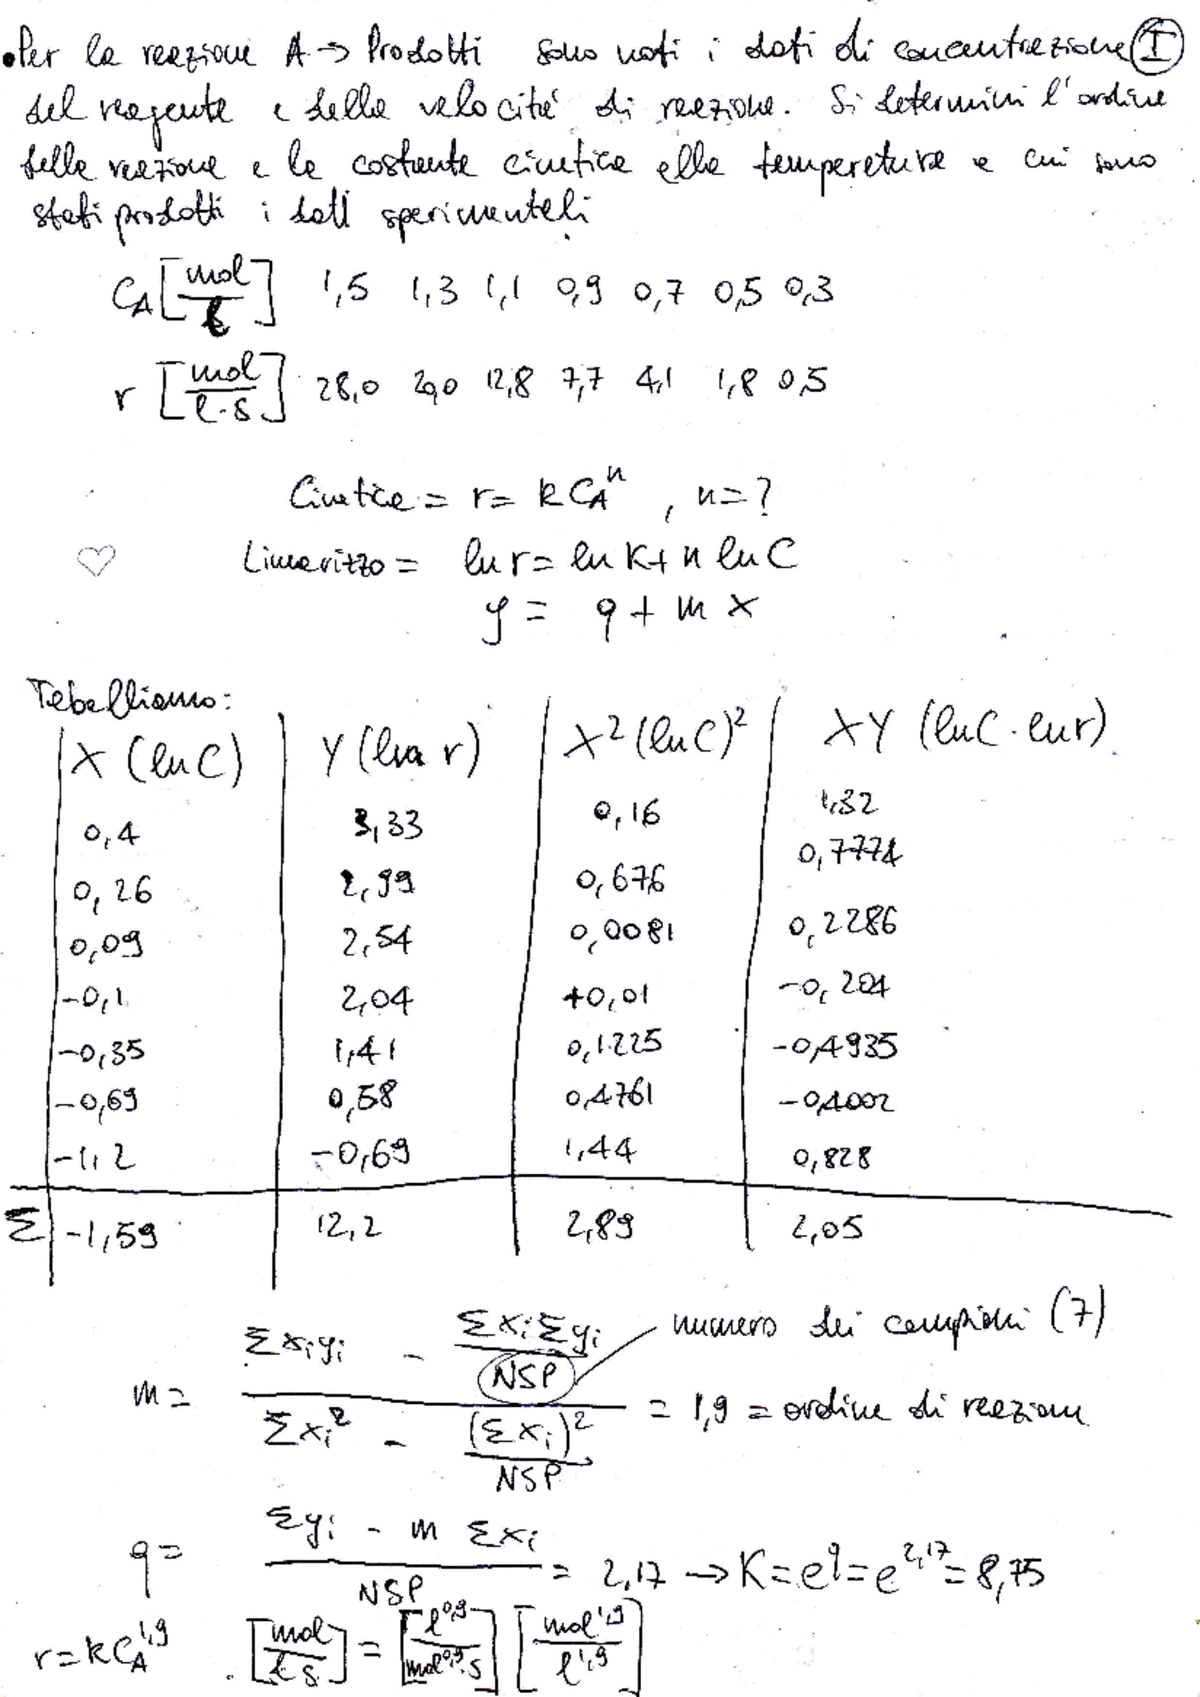 •Per la reazione A → Prodotti sono noti i dati di concentrazione (I)
del reagente e della velocità di reazione. Si determini l'ordine
della reazione e la costante cinetica alla temperatura a cui sono
stati prodotti i dati sperimentali
CA [mol/l] 1,5 1,3 1,1 0,9 0,7 0,5 0,3
r [mol/l·s] 28,0 20,0 12,8 7,7 4,1 1,8 0,5
Cinetica = r = k CA^n , n=?
♡ Linearizzo = ln r = ln K + n ln C
y = q + m x
Tabelliamo:
X (ln C) Y (ln r) X² (ln C)² XY (ln C · ln r)
0,4 3,33 0,16 1,32
0,26 2,99 0,676 0,7774
0,09 2,54 0,0081 0,2286
-0,1 2,04 +0,01 -0,204
-0,35 1,41 0,1225 -0,4935
-0,69 0,58 0,4761 -0,4002
-1,2 -0,69 1,44 0,828
Σ -1,59 12,2 2,89 2,05
numero dei campioni (7)
m = (Σxiyi - Σxi Σyi / NSP) / (Σxi² - (Σxi)² / NSP) = 1,9 = ordine di reazione
q = (Σyi - m Σxi) / NSP = 2,17 → K = e^q = e^2,17 = 8,75
r = k CA^1,9 [mol/l s] = [l^0,9/mol^0,9·s] [mol^1,9/l^1,9]